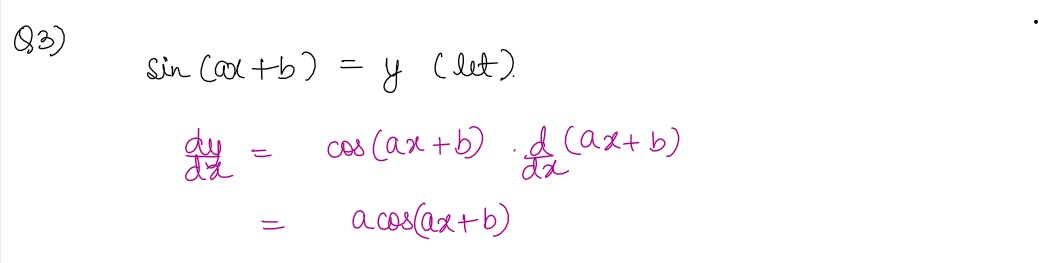 Q3)
sin (ax+b) = y (let).
dy/dx = cos(ax+b) . d/dx (ax+b)
= a cos(ax+b)